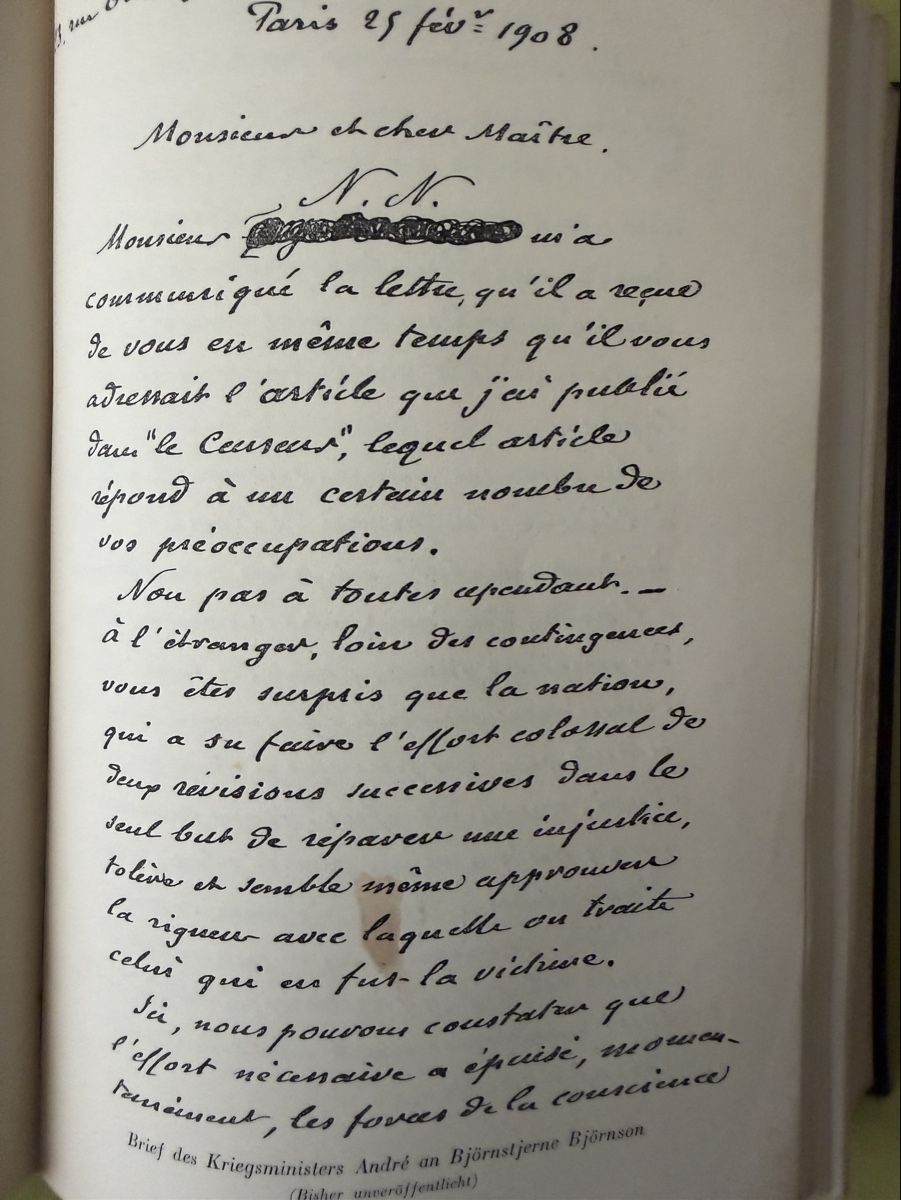 Paris 25 févr 1908.
Monsieur et cher Maître.
N. N.
Monsieur m'a
communiqué la lettre, qu'il a reçue
de vous en même temps qu'il vous
adressait l'article que j'ai publié
dans "le Censeur", lequel article
répond à un certain nombre de
vos préoccupations.
Non pas à toutes cependant. —
à l'étranger, loin des contingences,
vous êtes surpris que la nation,
qui a su faire l'effort colossal de
deux révisions successives dans le
seul but de réparer une injustice,
tolère et semble même approuver
la rigueur avec laquelle on traite
celui qui en fut la victime.
Ici, nous pouvons constater que
l'effort nécessaire a épuisé, momen-
tanément, les forces de la conscience
Brief des Kriegsministers André an Björnstjerne Björnson
(Bisher unveröffentlicht)